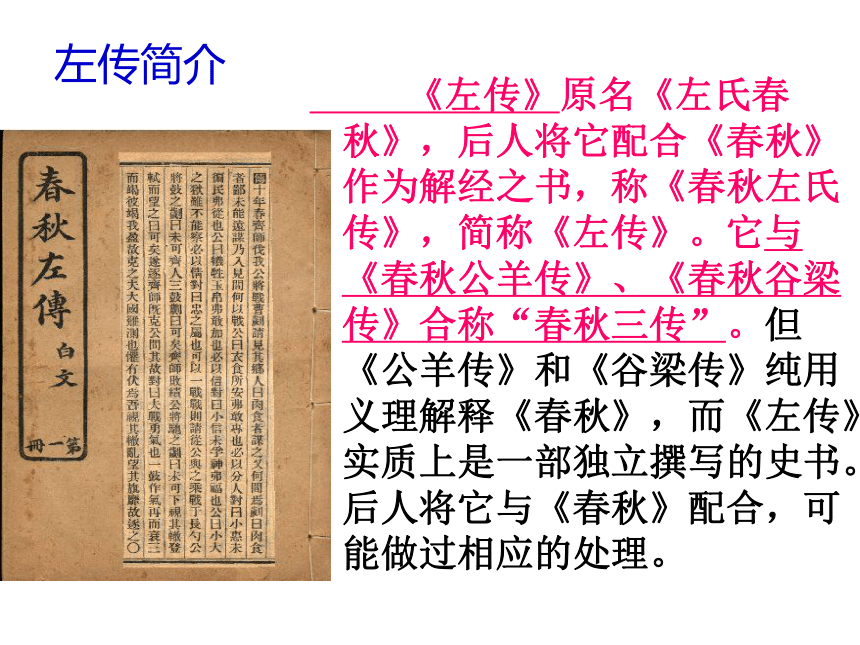 左传简介
《左传》原名《左氏春
秋》，后人将它配合《春秋》
作为解经之书，称《春秋左氏
传》，简称《左传》。它与
《春秋公羊传》、《春秋谷梁
传》合称“春秋三传”。但
《公羊传》和《谷梁传》纯用
义理解释《春秋》，而《左传》
实质上是一部独立撰写的史书。
后人将它与《春秋》配合，可
能做过相应的处理。
春秋左傳
白文
第一冊
十年春齊師伐我公將戰曹劌請見其鄉人曰肉食者謀之又何間焉劌曰肉食
者鄙未能遠謀乃入見問何以戰公曰衣食所安弗敢專也必以分人對曰小惠未
徧民弗從也公曰犧牲玉帛弗敢加也必以信對曰小信未孚神弗福也公曰小大
之獄雖不能察必以情對曰忠之屬也可以一戰戰則請從公與之乘戰于長勺公
將鼓之劌曰未可齊人三鼓劌曰可矣齊師敗績公將馳之劌曰未可下視其轍登
軾而望之曰可矣遂逐齊師既克公問其故對曰夫戰勇氣也一鼓作氣再而衰三
而竭彼竭我盈故克之夫大國難測也懼有伏焉吾視其轍亂望其旗靡故逐之〇